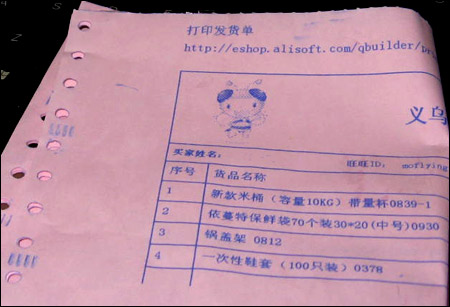 打印发货单
http://eshop.alisoft.com/qbuilder/pr
义乌
买家姓名: 旺旺ID: moflying
序号 货品名称
1 新款米桶（容量10KG）带量杯0839-1
2 依蔓特保鲜袋70个装30*20(中号)0930
3 锅盖架 0812
4 一次性鞋套（100只装）0378